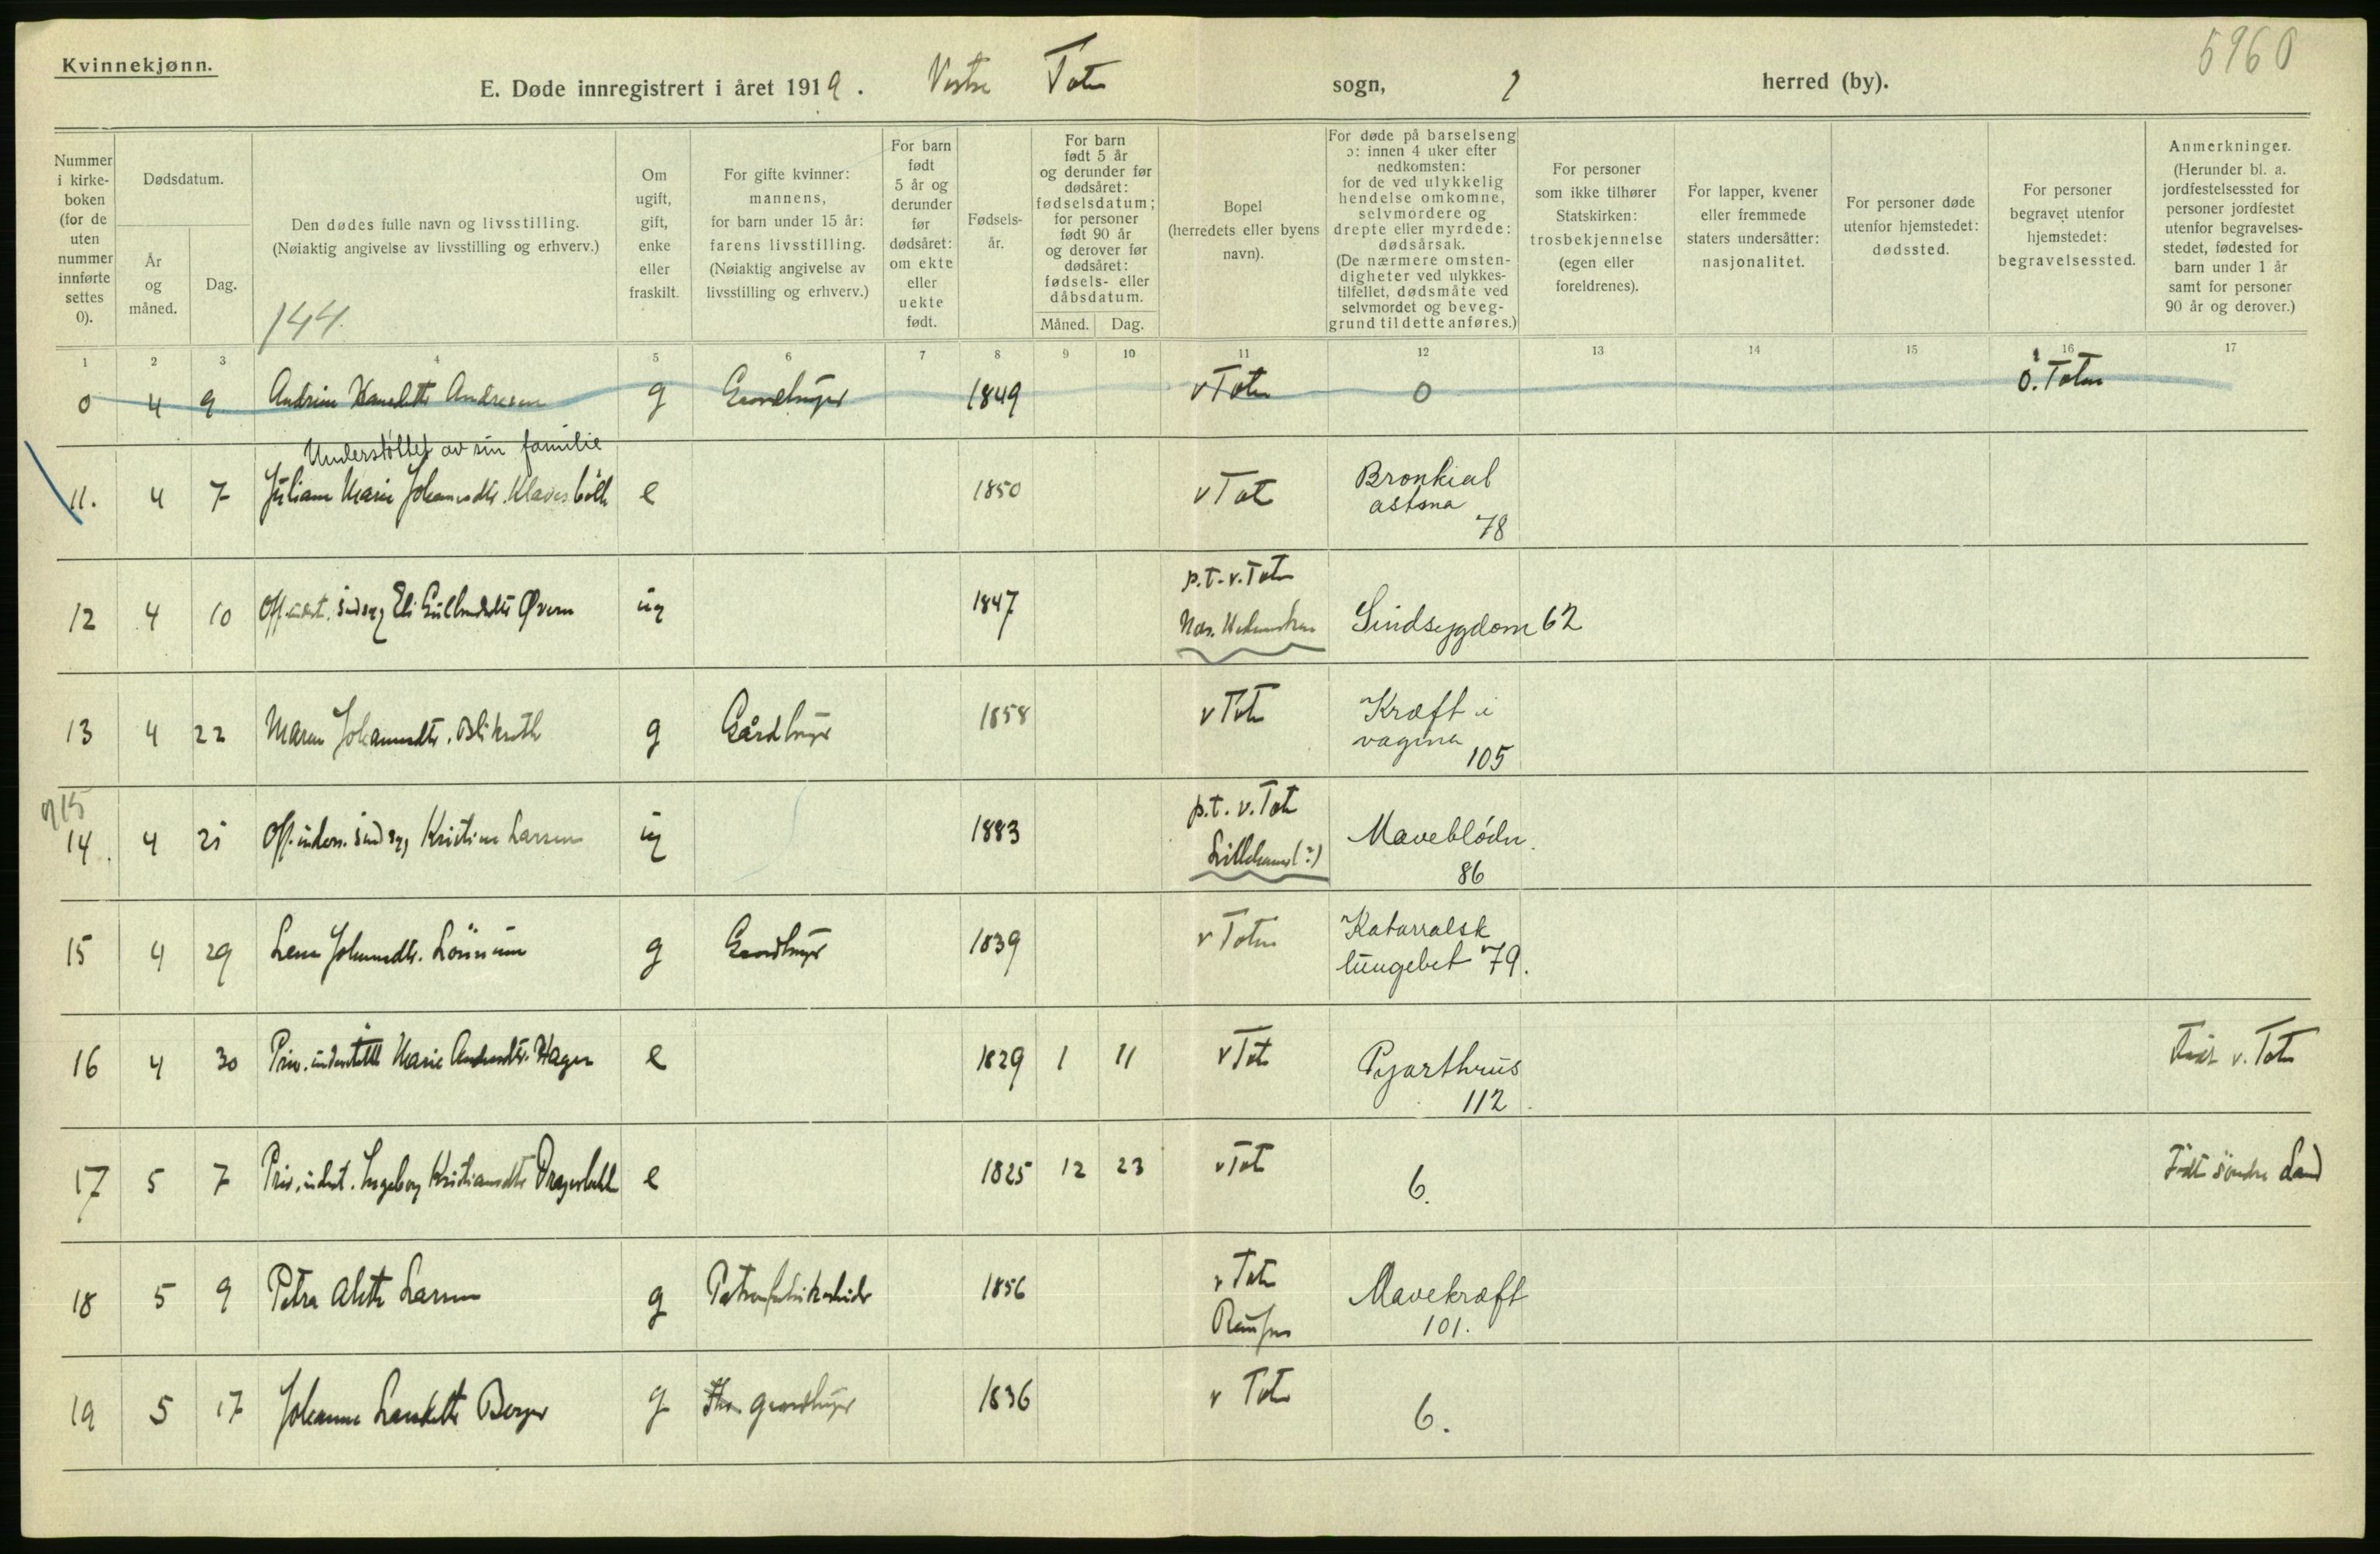 Kvinnekjønn.
5960
E. Døde innregistrert i året 1919. Vestre Toten sogn, herred (by).
Nummer i kirke-boken (for de uten nummer innførte settes 0).
Dødsdatum.
År og måned.
Dag.
Den dødes fulle navn og livsstilling.
(Nøiaktig angivelse av livsstilling og erhverv.)
144.
Om ugift, gift, enke eller fraskilt.
For gifte kvinner: mannens, for barn under 15 år: farens livsstilling. (Nøiaktig angivelse av livsstilling og erhverv.)
For barn født 5 år og derunder før dødsåret: om ekte eller uekte født.
Fødsels-år.
For barn født 5 år og derunder før dødsåret: fødselsdatum; for personer født 90 år og derover før dødsåret: fødsels- eller dåbsdatum.
Måned. Dag.
Bopel (herredets eller byens navn).
For døde på barselseng ɔ: innen 4 uker efter nedkomsten: for de ved ulykkelig hendelse omkomne, selvmordere og drepte eller myrdede: dødsårsak. (De nærmere omsten-digheter ved ulykkes-tilfellet, dødsmåte ved selvmordet og beveg-grund til dette anføres.)
For personer som ikke tilhører Statskirken: trosbekjennelse (egen eller foreldrenes).
For lapper, kvener eller fremmede staters undersåtter: nasjonalitet.
For personer døde utenfor hjemstedet: dødssted.
For personer begravet utenfor hjemstedet: begravelsessted.
Anmerkninger. (Herunder bl. a. jordfestelsessted for personer jordfestet utenfor begravelses-stedet, fødested for barn under 1 år samt for personer 90 år og derover.)
1 2 3 4 5 6 7 8 9 10 11 12 13 14 15 16 17
0 4 9 Andrine Andresen g 1849 v Toten 0 Ö. Toten
Understöttet av sin familie
11. 4 7 Juliane Marie Johannesdtr. e 1850 v Toten Bronkial
astma
78
p.t. v. Toten
12 4 10 Eli Øvern ug 1847 Nes. Hedemarken Sindsygdom 62
13 4 22 Maren Johannesdtr. g Gårdbruger 1858 v Toten Kræft i
vagina
105
915
p.t. v. Toten
14. 4 25 Off. unders. sindssyg Kristine Larsen ug 1883 Lillehammer (?) Maveblödn.
86
15 4 29 Lena Johannesdtr. g Gårdbruger 1839 v Toten Katarralsk
lungebet 79.
16 4 30 Priv. understöttet Marie Hagen e 1829 1 11 v Toten Pyarthrus Födt v. Toten
112
17 5 7 Priv. underst. Ingeborg Kristiansdtr e 1825 12 23 v Toten 6. Födt Söndre Land
18 5 9 Petra Alette Larsen g Patronfabrikarbeider 1856 v Toten
Raufoss Mavekræft
101.
19 5 17 Johanne Berger g gårdbruger 1836 v Toten 6.